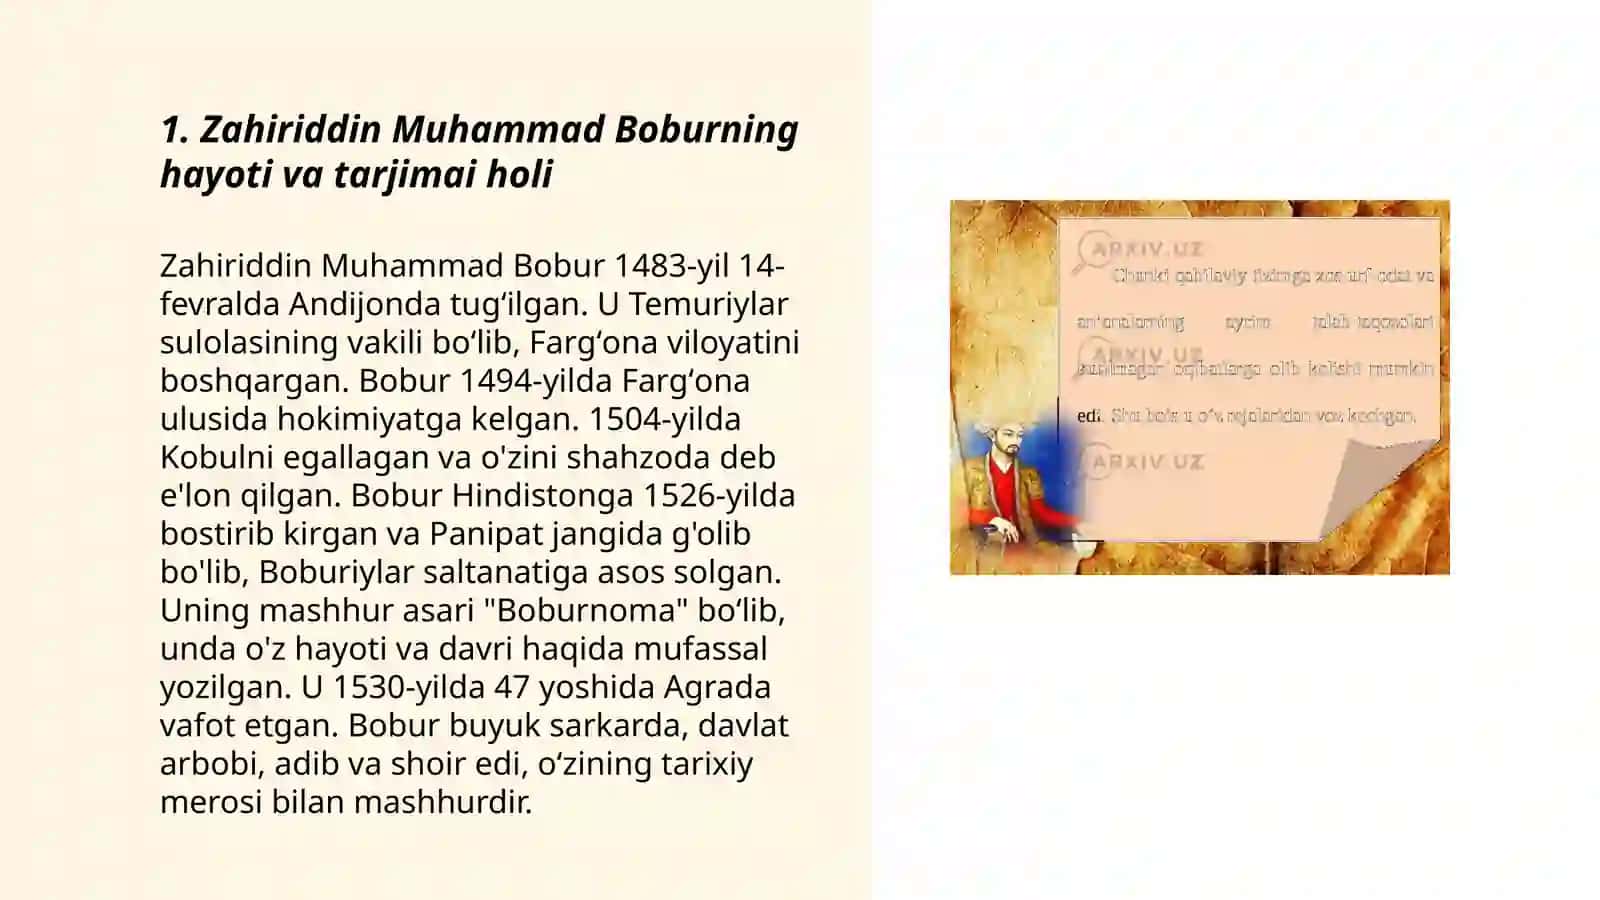 1. Zahiriddin Muhammad Boburning
hayoti va tarjimai holi
Zahiriddin Muhammad Bobur 1483-yil 14-
fevralda Andijonda tug‘ilgan. U Temuriylar
sulolasining vakili bo‘lib, Farg‘ona viloyatini
boshqargan. Bobur 1494-yilda Farg‘ona
ulusida hokimiyatga kelgan. 1504-yilda
Kobulni egallagan va o'zini shahzoda deb
e'lon qilgan. Bobur Hindistonga 1526-yilda
bostirib kirgan va Panipat jangida g'olib
bo'lib, Boburiylar saltanatiga asos solgan.
Uning mashhur asari "Boburnoma" bo‘lib,
unda o'z hayoti va davri haqida mufassal
yozilgan. U 1530-yilda 47 yoshida Agrada
vafot etgan. Bobur buyuk sarkarda, davlat
arbobi, adib va shoir edi, o‘zining tarixiy
merosi bilan mashhurdir.
ARXIV.UZ
qabilaviy tizimga xos urf-odat va
ayrim
ARXIV.UZ
oqibatlarga olib kelishi mumkin
edi. Shu bois u o‘z rejalaridan voz kechgan.
ARXIV.UZ